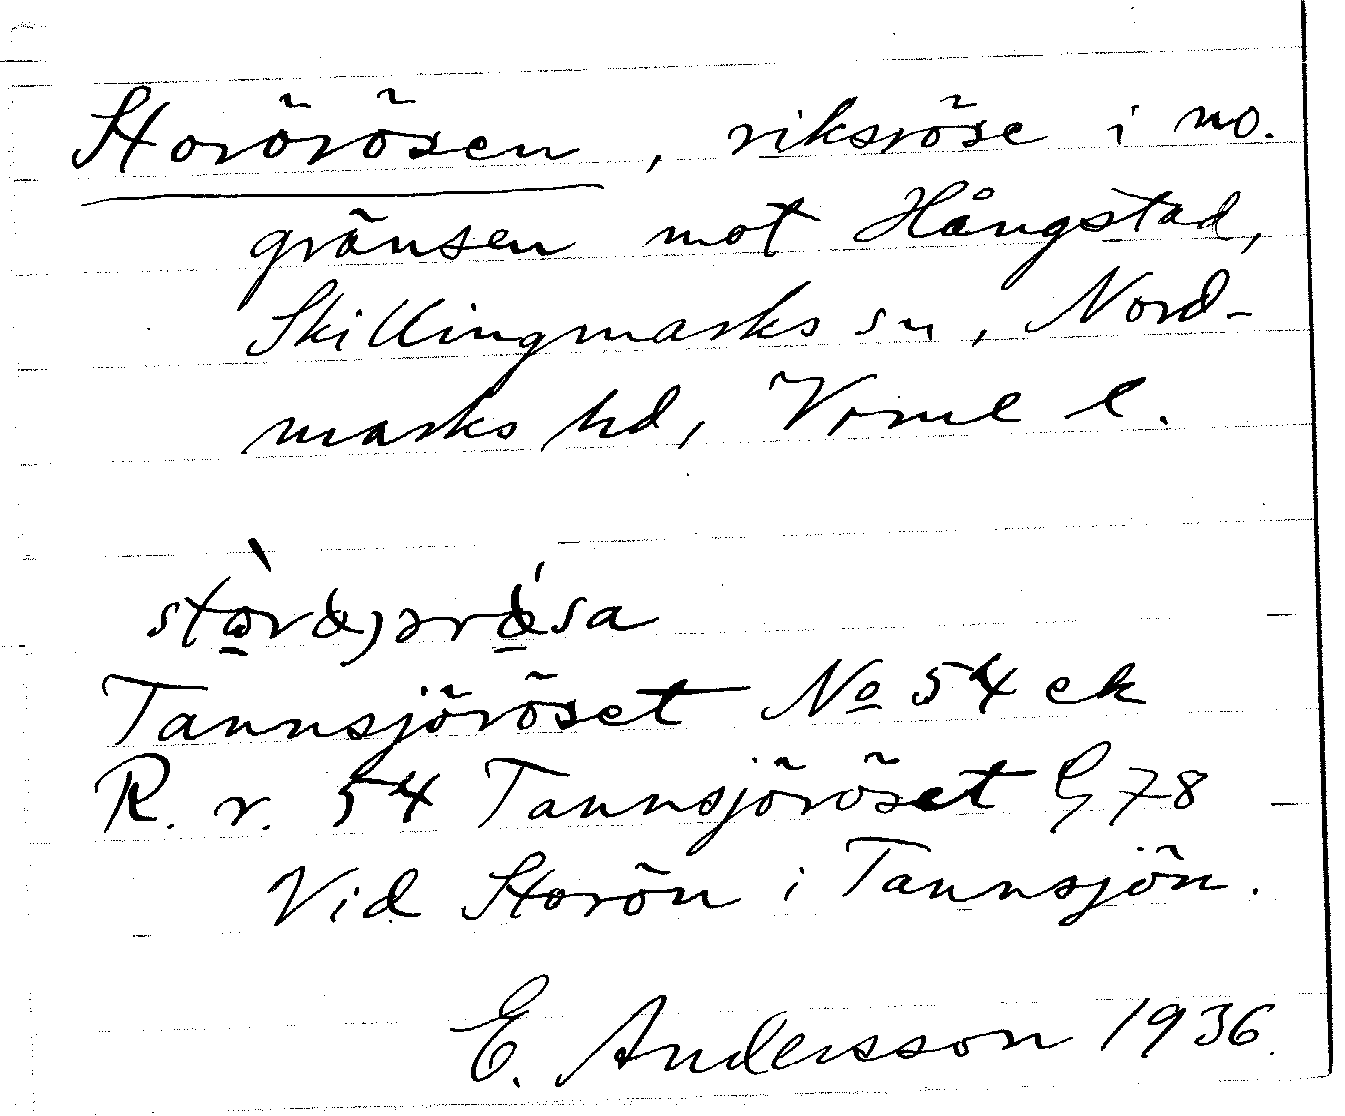 Storörösen, riksröse i no.
gränsen mot Hångstad,
Skillingmarks sn, Nord-
marks hd, Vrml l.
Tannsjöröset No 54 ek
R. r. 54 Tannsjöröset G 78
Vid Storön i Tannsjön.
E. Andersson 1936.